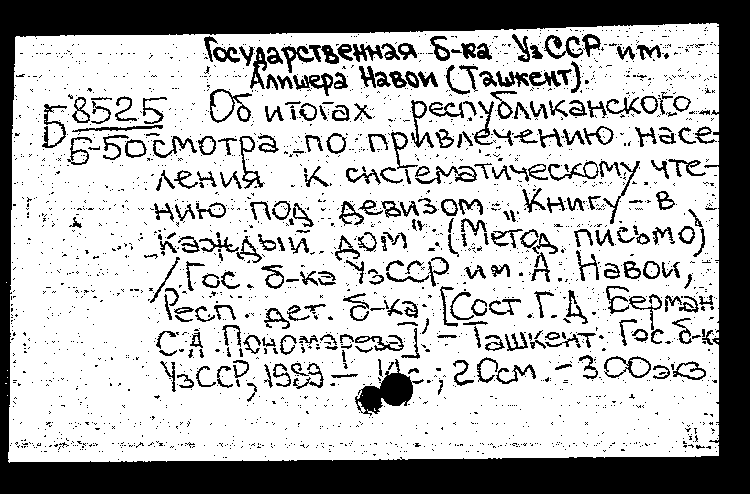 Государственная б-ка УзССР им.
Алишера Навои (Ташкент).
Б 8525 Об итогах республиканского
Б-50 смотра по привлечению насе-
ления к систематическому чте-
нию под девизом „Книгу – в
каждый дом". (Метод. письмо)
/ Гос. б-ка УзССР им. А. Навои,
Респ. дет. б-ка; [Сост. Г.Д. Берман
С.А. Пономарева]. – Ташкент: Гос. б-ка
УзССР, 1989. – с.; 20см. – 300экз.